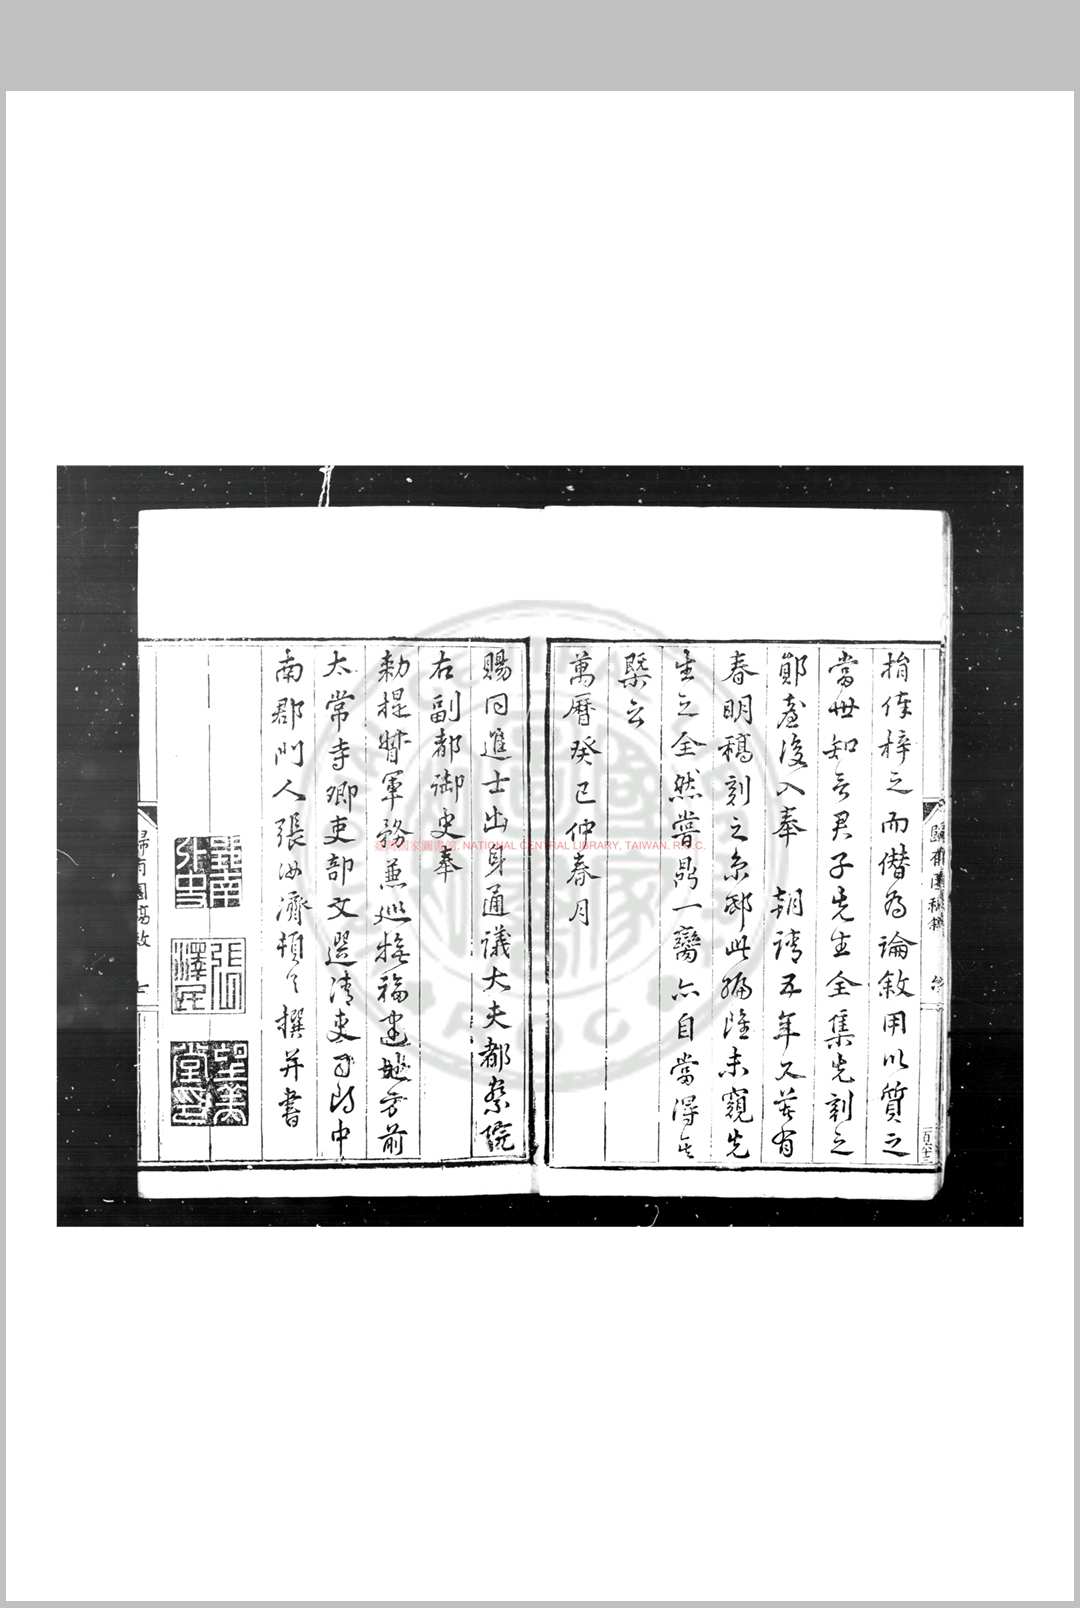 捐俸梓之而僭為論敘用以質之
當世知言君子先生全集先刻之
鄖臺後入奉 朝請五年又苦有
春明稿刻之京邸此編雖未窺先
生之全然嘗鼎一臠亦自當得其
槩云
萬曆癸巳仲春月
賜同進士出身通議大夫都察院
右副都御史奉
勅提督軍務兼巡撫福建地方前
太常寺卿吏部文選清吏司郎中
南郡門人張汝濟頓首撰并書
歸有園稿敘
七
NATIONAL CENTRAL LIBRARY, TAIWAN, R.O.C.